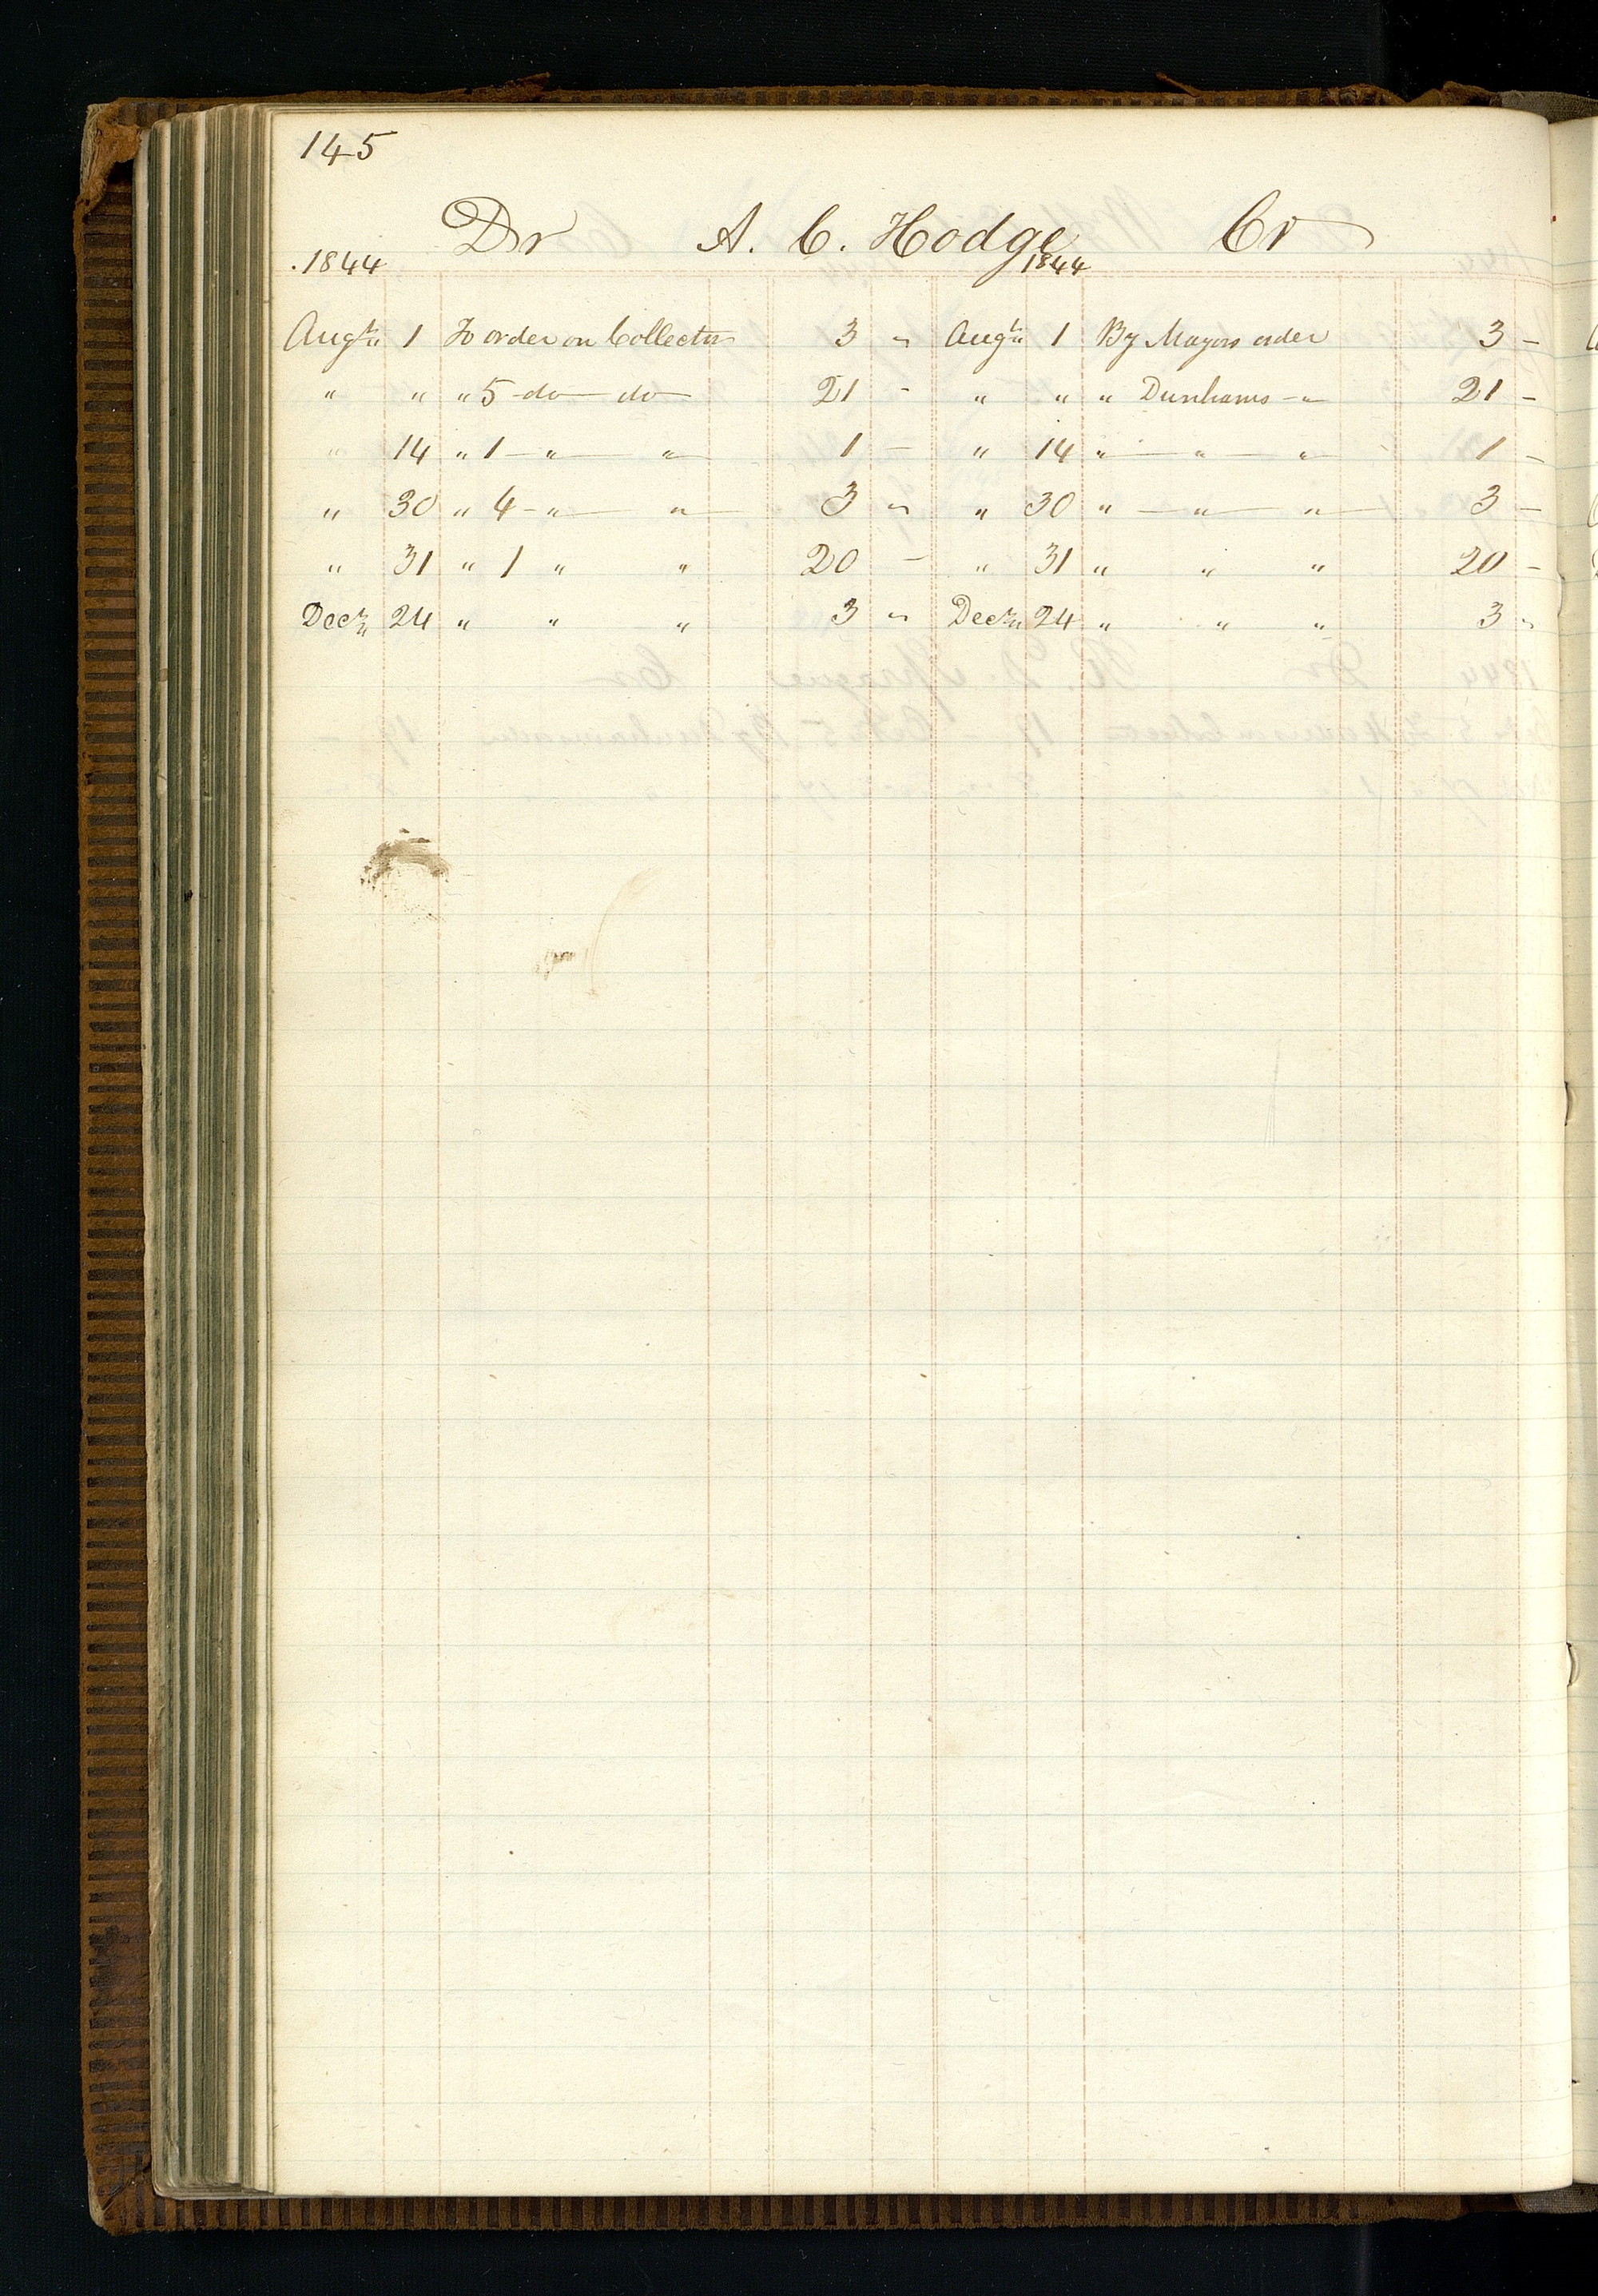 145
Dr A. C. Hodge Cr
1844 1844
Augt 1 To order on Collector 3 " Augt 1 By Mayors order 3 -
" " " 5 -do- do 21 - " " " Dunhams - " 21 -
" 14 " 1 - " - " 1 - " 14 " - " - " 1 -
" 30 " 4 - " - " 3 " " 30 " - " - " 3 -
" 31 " 1 " " 20 - " 31 " " " 20 -
Decr 24 " " " 3 " Decr 24 " " " 3 "